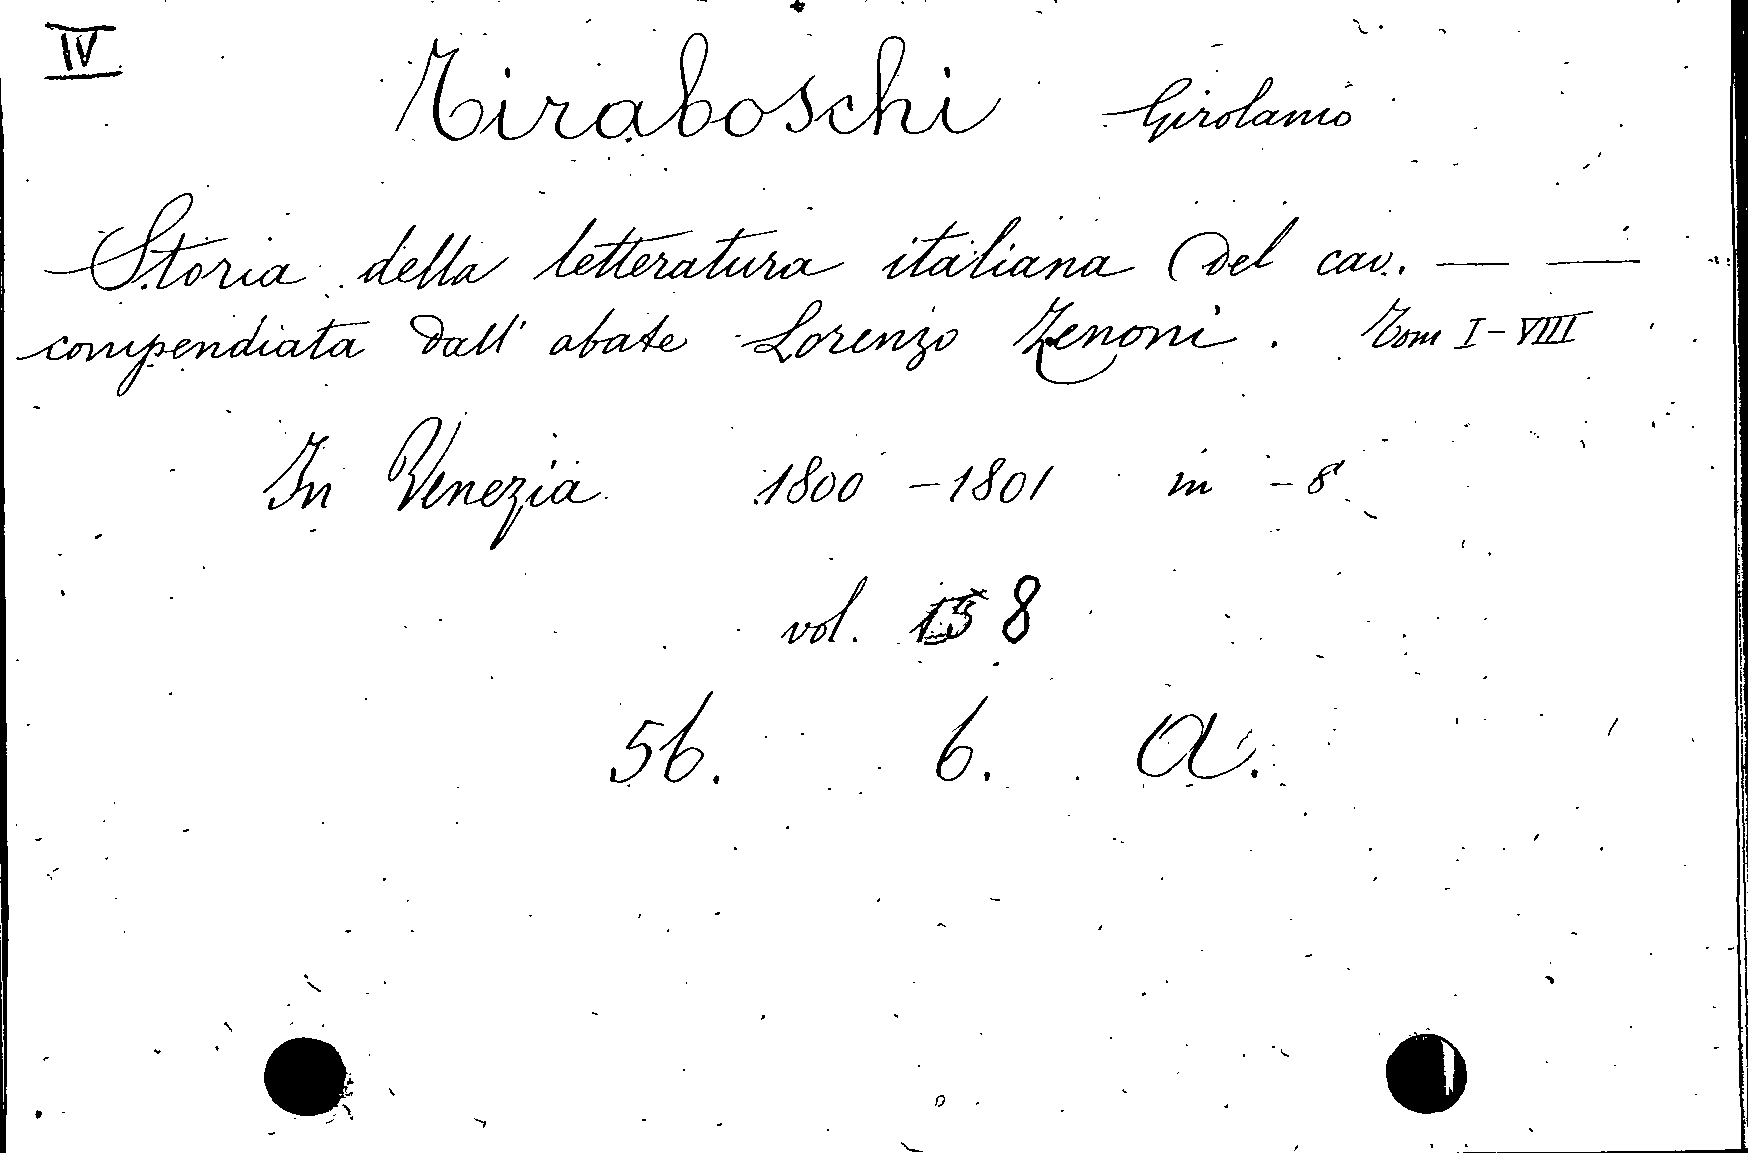 IV
Tiraboschi Girolamo
Storia della letteratura italiana del cav. — —
compendiata dall' abate Lorenzo Zenoni. Tom I-VIII
In Venezia 1800 - 1801 in - 8°
vol. 8
56. 6. A.